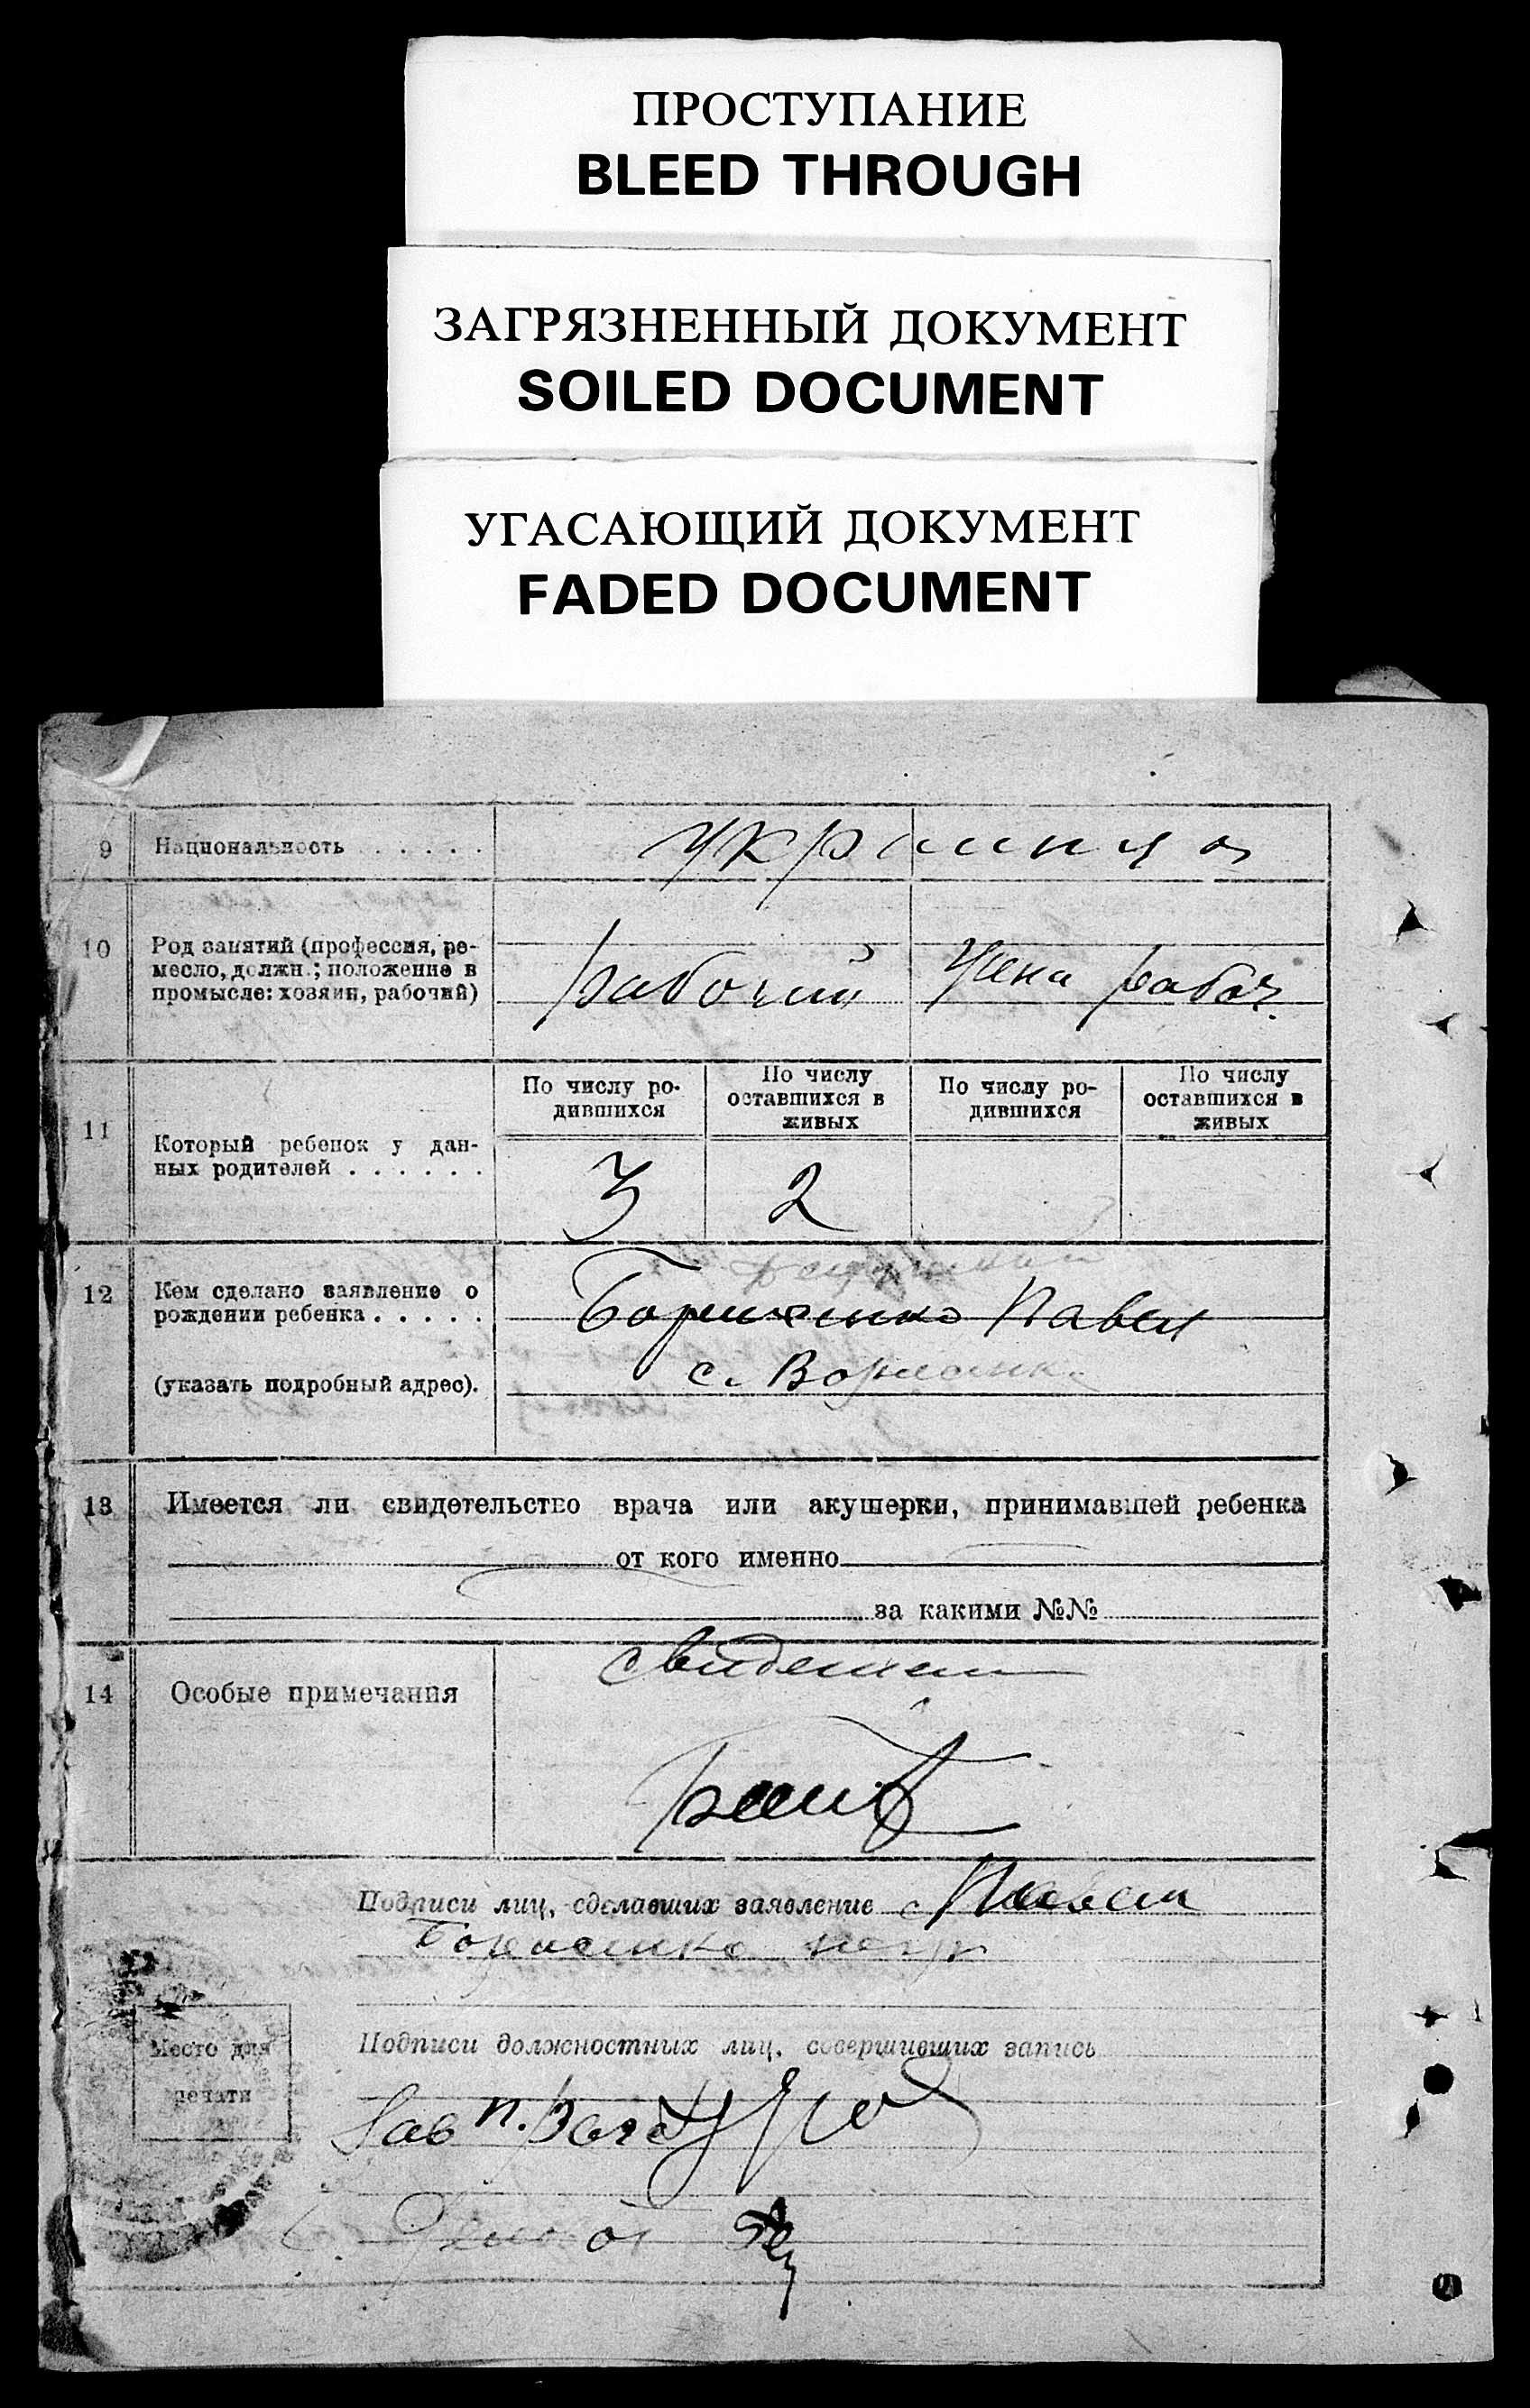 ПРОСТУПАНИЕ
BLEED THROUGH
ЗАГРЯЗНЕННЫЙ ДОКУМЕНТ
SOILED DOCUMENT
УГАСАЮЩИЙ ДОКУМЕНТ
FADED DOCUMENT
9 Национальность . . . . .
10 Род занятий (профессия, ре-
месло, должн.; положение в
промысле: хозяин, рабочий)
рабочий
жена рабоч.
11 Который ребенок у дан-
ных родителей . . . . . .
По числу ро-
дившихся
По числу
оставшихся в
живых
По числу ро-
дившихся
По числу
оставшихся в
живых
3 2
12 Кем сделано заявление о
рождении ребенка . . . . .
Павел
(указать подробный адрес).
с.
13 Имеется ли свидетельство врача или акушерки, принимавшей ребенка
от кого именно
за какими №№
14 Особые примечания
свидетели
Подписи лиц, сделавших заявление Павел
Место для
печати
Подписи должностных лиц, совершивших запись
Зав